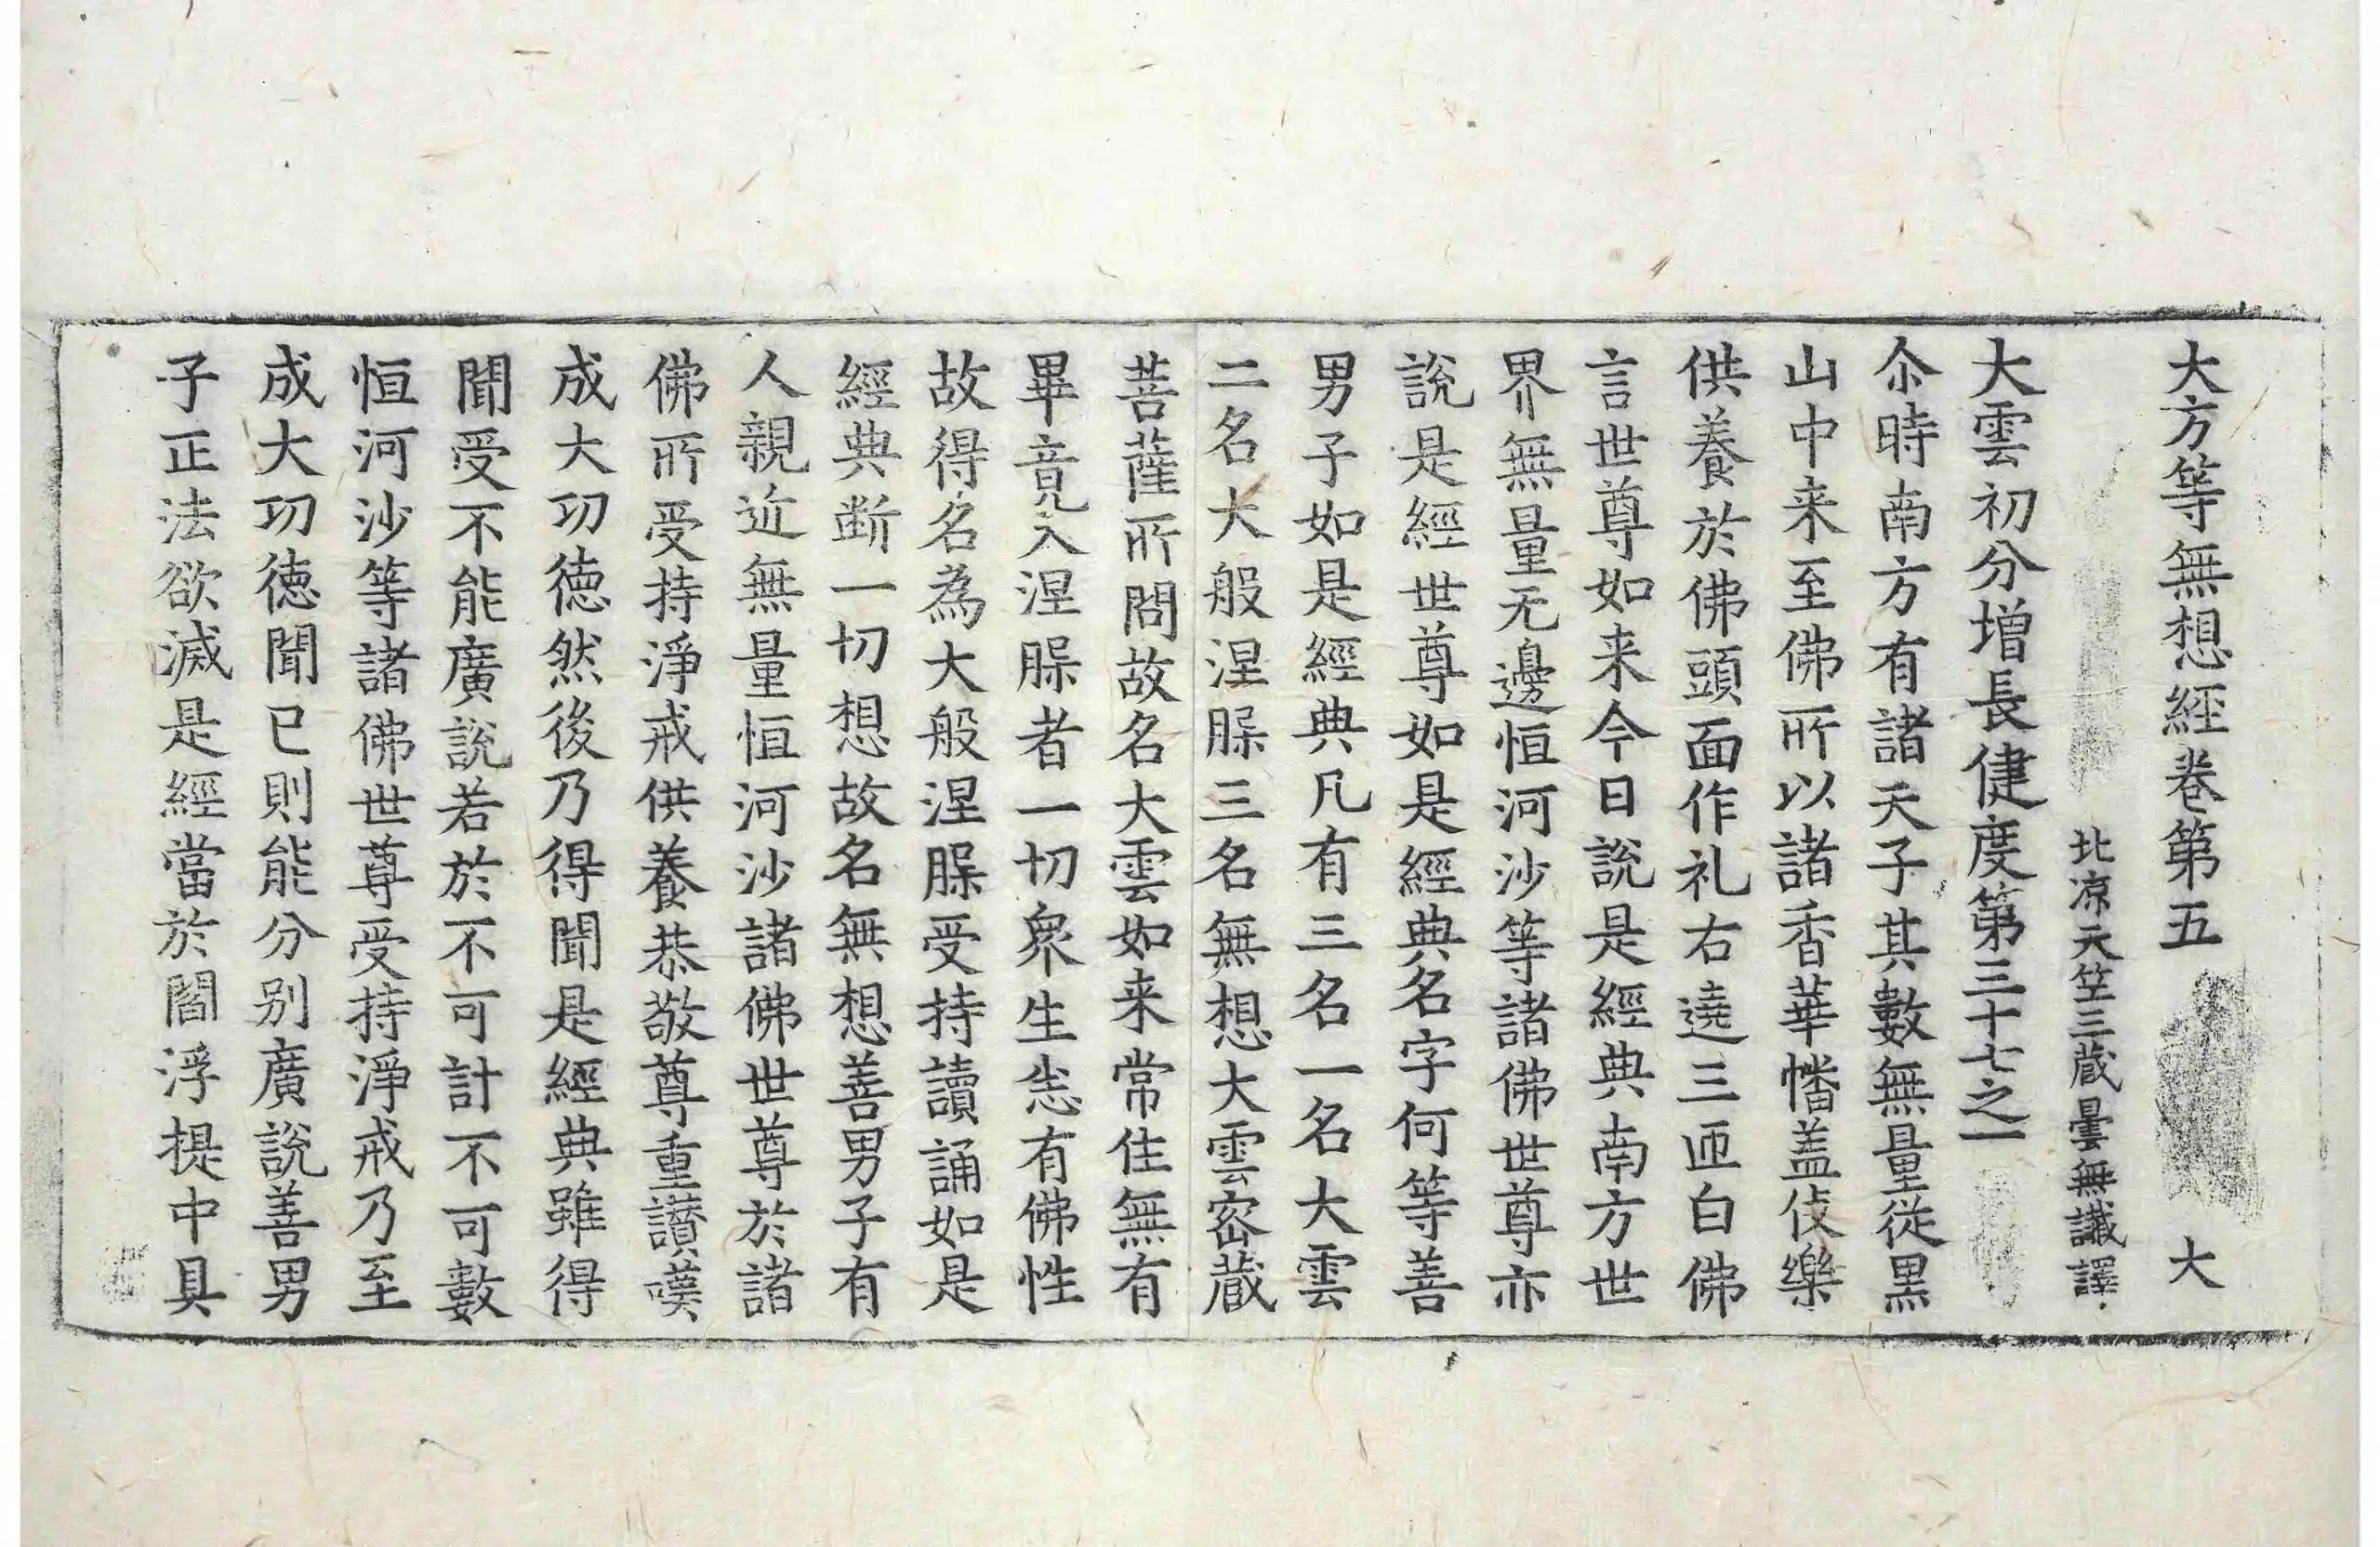 大方等無想經卷第五　大
北涼天竺三蔵曇無讖譯
大雲初分増長健度第三十七之一
尒時南方有諸天子其數無量從黒
山中来至佛所以諸香華幡盖伎樂
供養於佛頭面作礼右遶三匝白佛
言世尊如来今日說是經典南方世
界無量无邊恒河沙等諸佛世尊亦
說是經世尊如是經典名字何等善
男子如是經典凡有三名一名大雲
二名大般涅槃三名無想大雲宻蔵
菩薩所問故名大雲如来常住無有
畢竟入涅槃者一切衆生悉有佛性
故得名為大般涅槃受持讀誦如是
經典断一切想故名無想善男子有
人親近無量恒河沙諸佛世尊於諸
佛所受持淨戒供養恭敬尊重讃嘆
成大功徳然後乃得聞是經典雖得
聞受不能廣說若於不可計不可數
恒河沙等諸佛世尊受持淨戒乃至
成大功徳聞已則能分别廣說善男
子正法欲滅是經當於閻浮提中具